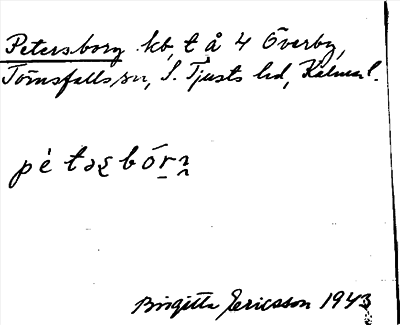 Petersborg kb, t å 4 Överby,
Törnsfalls sn, S. Tjusts hd, Kalmar l.
pètəʂbórɲ̭
Birgitta Ericsson 1943